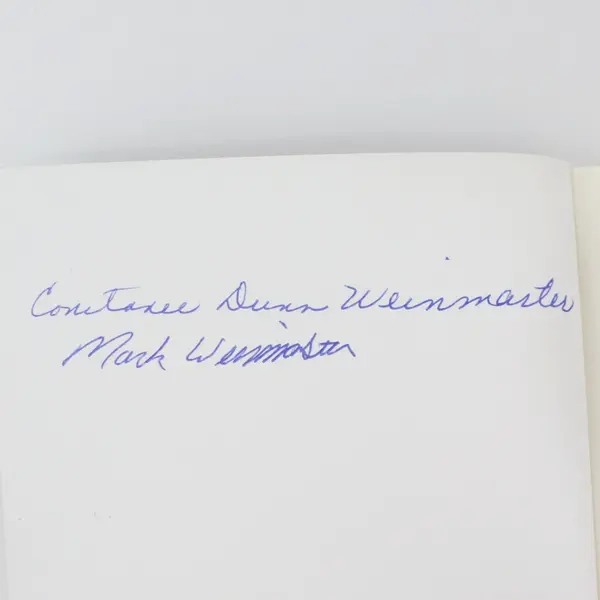 Constance Dunn Weinmaster
Mark Weinmaster